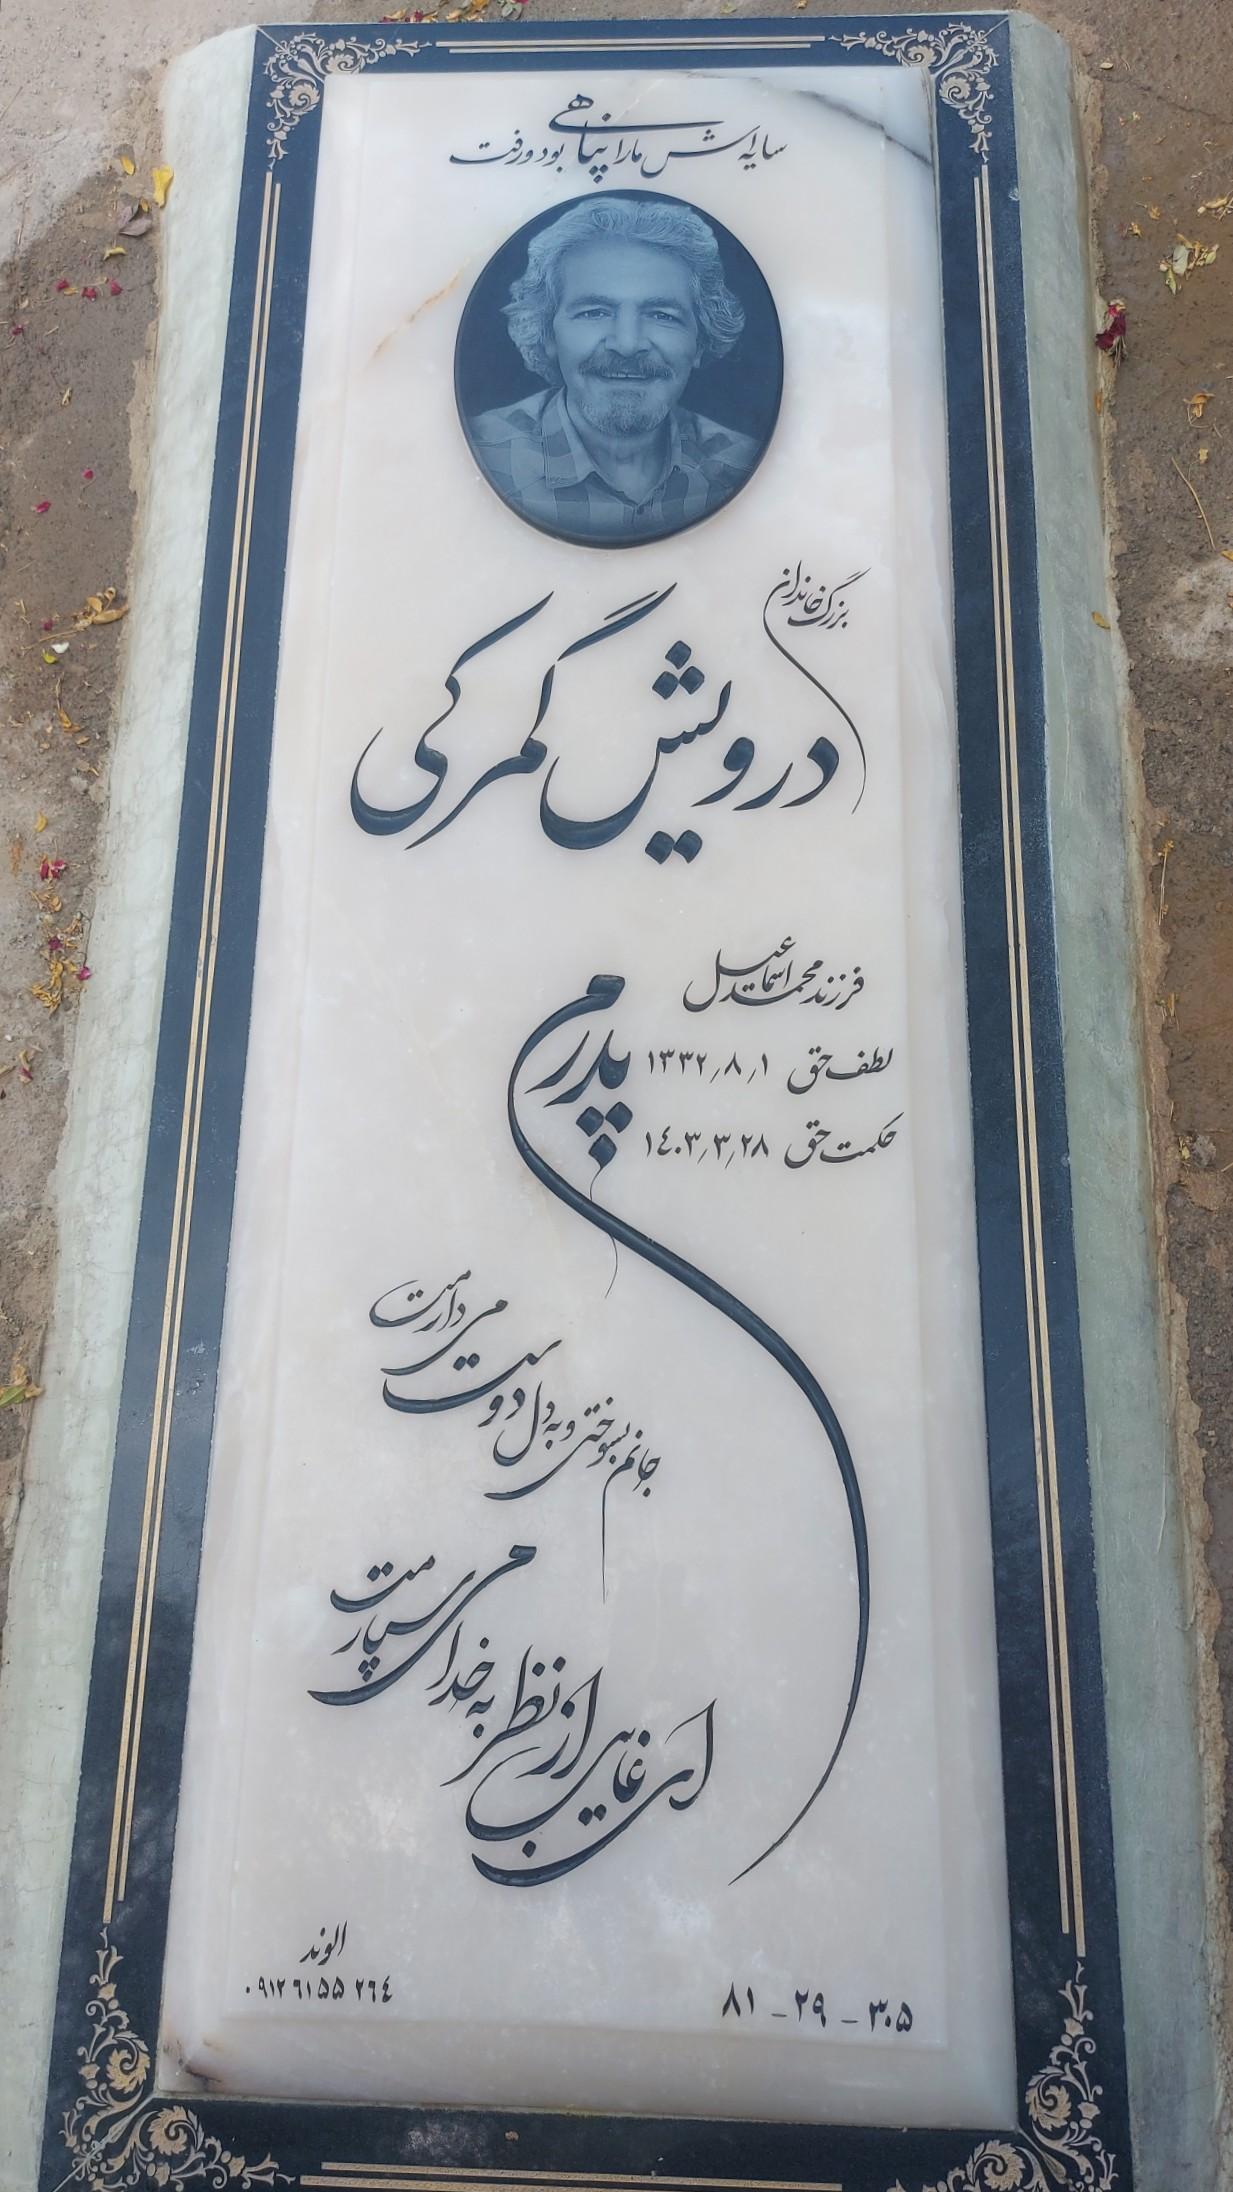 سایه‌اش ما را پناهی بود و رفت
بزرگ خاندان
درویش گمرکی
فرزند محمد اسماعیل
لطف حق ۱۳۳۲٫۸٫۱
حکمت حق ۱۴۰۳٫۳٫۲۸
پدرم
جانم بسوختی و به دل دوست می دارمت
ای غایب از نظر به خدا می سپارمت
الوند
۰۹۱۲ ۶۱ ۵۵ ۲۶۴
۸۱ - ۲۹ - ۳۰۵